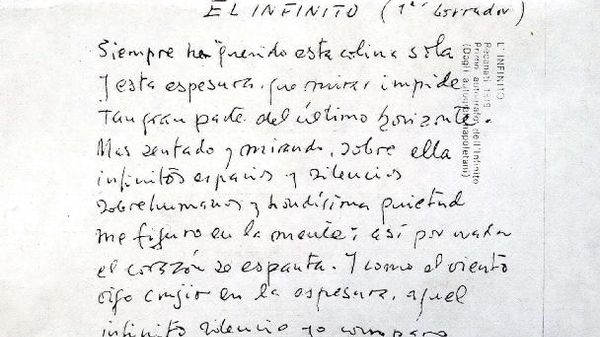 EL INFINITO (1er borrador)
Siempre he querido esta colina sola
Y esta espesura, que mirar impide
Tan gran parte del último horizonte.
Mas sentado y mirando, sobre ella
infinitos espacios y silencios
sobrehumanos y hondísima quietud
me figuro en la mente; así por nada
el corazón se espanta. Y como el viento
oigo crujir en la espesura, aquel
infinito silencio yo comparo
L'INFINITO
Recanati 1819
Primo autografo dell'Infinito
(Dagli autografi napoletani)